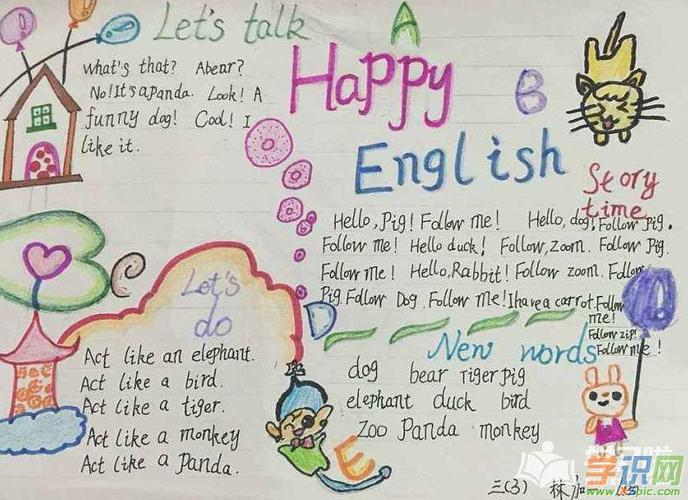 Let's talk
What's that? Abear?
No!It's a panda. Look! A
funny dog! Cool! I
like it.
A
Happy
B
English
Story
time
Hello, Pig! Follow me! Hello, dog! Follow Pig.
Follow me! Hello duck! Follow, zoom. Follow Pig.
Follow me! Hello, Rabbit! Follow zoom. Follow
Pig. Follow Dog. Follow Me! Ihave a carrot. Follow
me!
Follow zip!
Follow me!
C
Let's
do
D
Act like an elephant.
Act like a bird.
Act like a tiger.
Act like a monkey
Act like a Panda.
New words
dog bear Tiger pig
elephant duck bird
zoo Panda monkey
E
三(3) 林
学识网